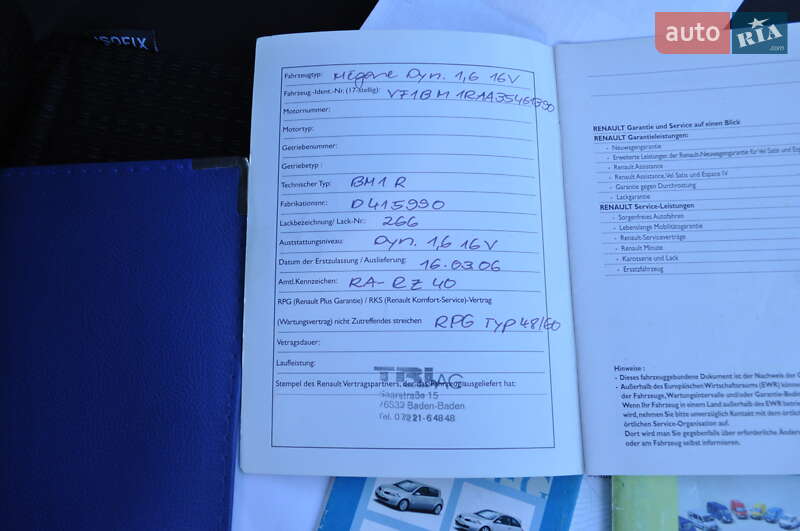 ISOFIX
auto RIA .com
Fahrzeugtyp: Mégane Dyn. 1,6 16V
Fahrzeug.-Ident.-Nr. (17-stellig): VF1BM1RAA35461390
Motornummer:
Motortyp:
Getriebenummer:
Getriebetyp:
Technischer Typ: BM1R
Fabrikationsnr.: D415990
Lackbezeichnung/ Lack-Nr.: 266
Ausstattungsniveau: Dyn. 1,6 16V
Datum der Erstzulassung / Auslieferung: 16.03.06
Amtl.Kennzeichen: RA-RZ 40
RPG (Renault Plus Garantie) / RKS (Renault Komfort-Service)-Vertrag
(Wartungsvertrag) nicht Zutreffendes streichen RPG Typ 48/60
Vetragsdauer:
Laufleistung:
Stempel des Renault Vertragspartners, der das Fahrzeug ausgeliefert hat:
Saarstraße 15
76532 Baden-Baden
Tel. 07221-64848
RENAULT Garantie und Service auf einen Blick
RENAULT Garantieleistungen:
- Neuwagengarantie
- Erweiterte Leistungen der Renault-Neuwagengarantie für Vel Satis und
- Renault Assistance
- Renault Assistance, Vel Satis und Espace IV
- Garantie gegen Durchrostung
- Lackgarantie
RENAULT Service-Leistungen
- Sorgenfreies Autofahren
- Lebenslange Mobilitätsgarantie
- Renault-Serviceverträge
- Renault Minute
- Karosserie und Lack
- Ersatzfahrzeug
Hinweise :
- Dieses fahrzeuggebundene Dokument ist der Nachweis der
- Außerhalb des Europäischen Wirtschaftsraums (EWR) können
der Fahrzeuge, Wartungsintervalle und/oder Garantie-Bedin
Wenn Ihr Fahrzeug in einem Land außerhalb des EWR betrie
wird, nehmen Sie bitte unverzüglich Kontakt mit dem dort
örtlichen Service-Organisation auf.
Dort wird man Sie gegebenfalls über erforderliche Änderun
oder am Fahrzeug selbst informieren.